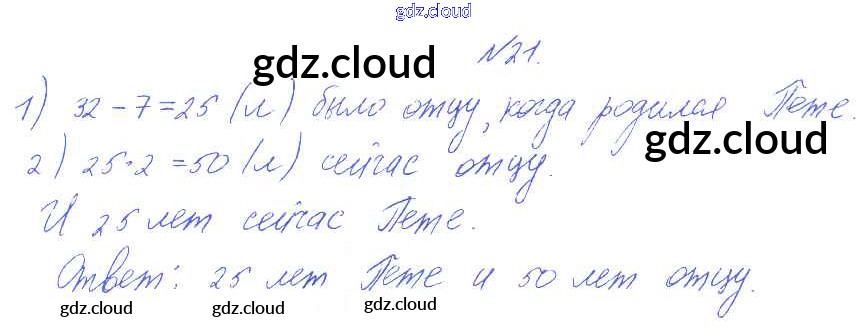 gdz.cloud
№21.
gdz.cloud
1) 32 - 7 = 25 (л) было отцу, когда родился Пете.
gdz.cloud
2) 25 · 2 = 50 (л) сейчас отцу.
И 25 лет сейчас Пете.
Ответ: 25 лет Пете и 50 лет отцу.
gdz.cloud gdz.cloud gdz.cloud gdz.cloud